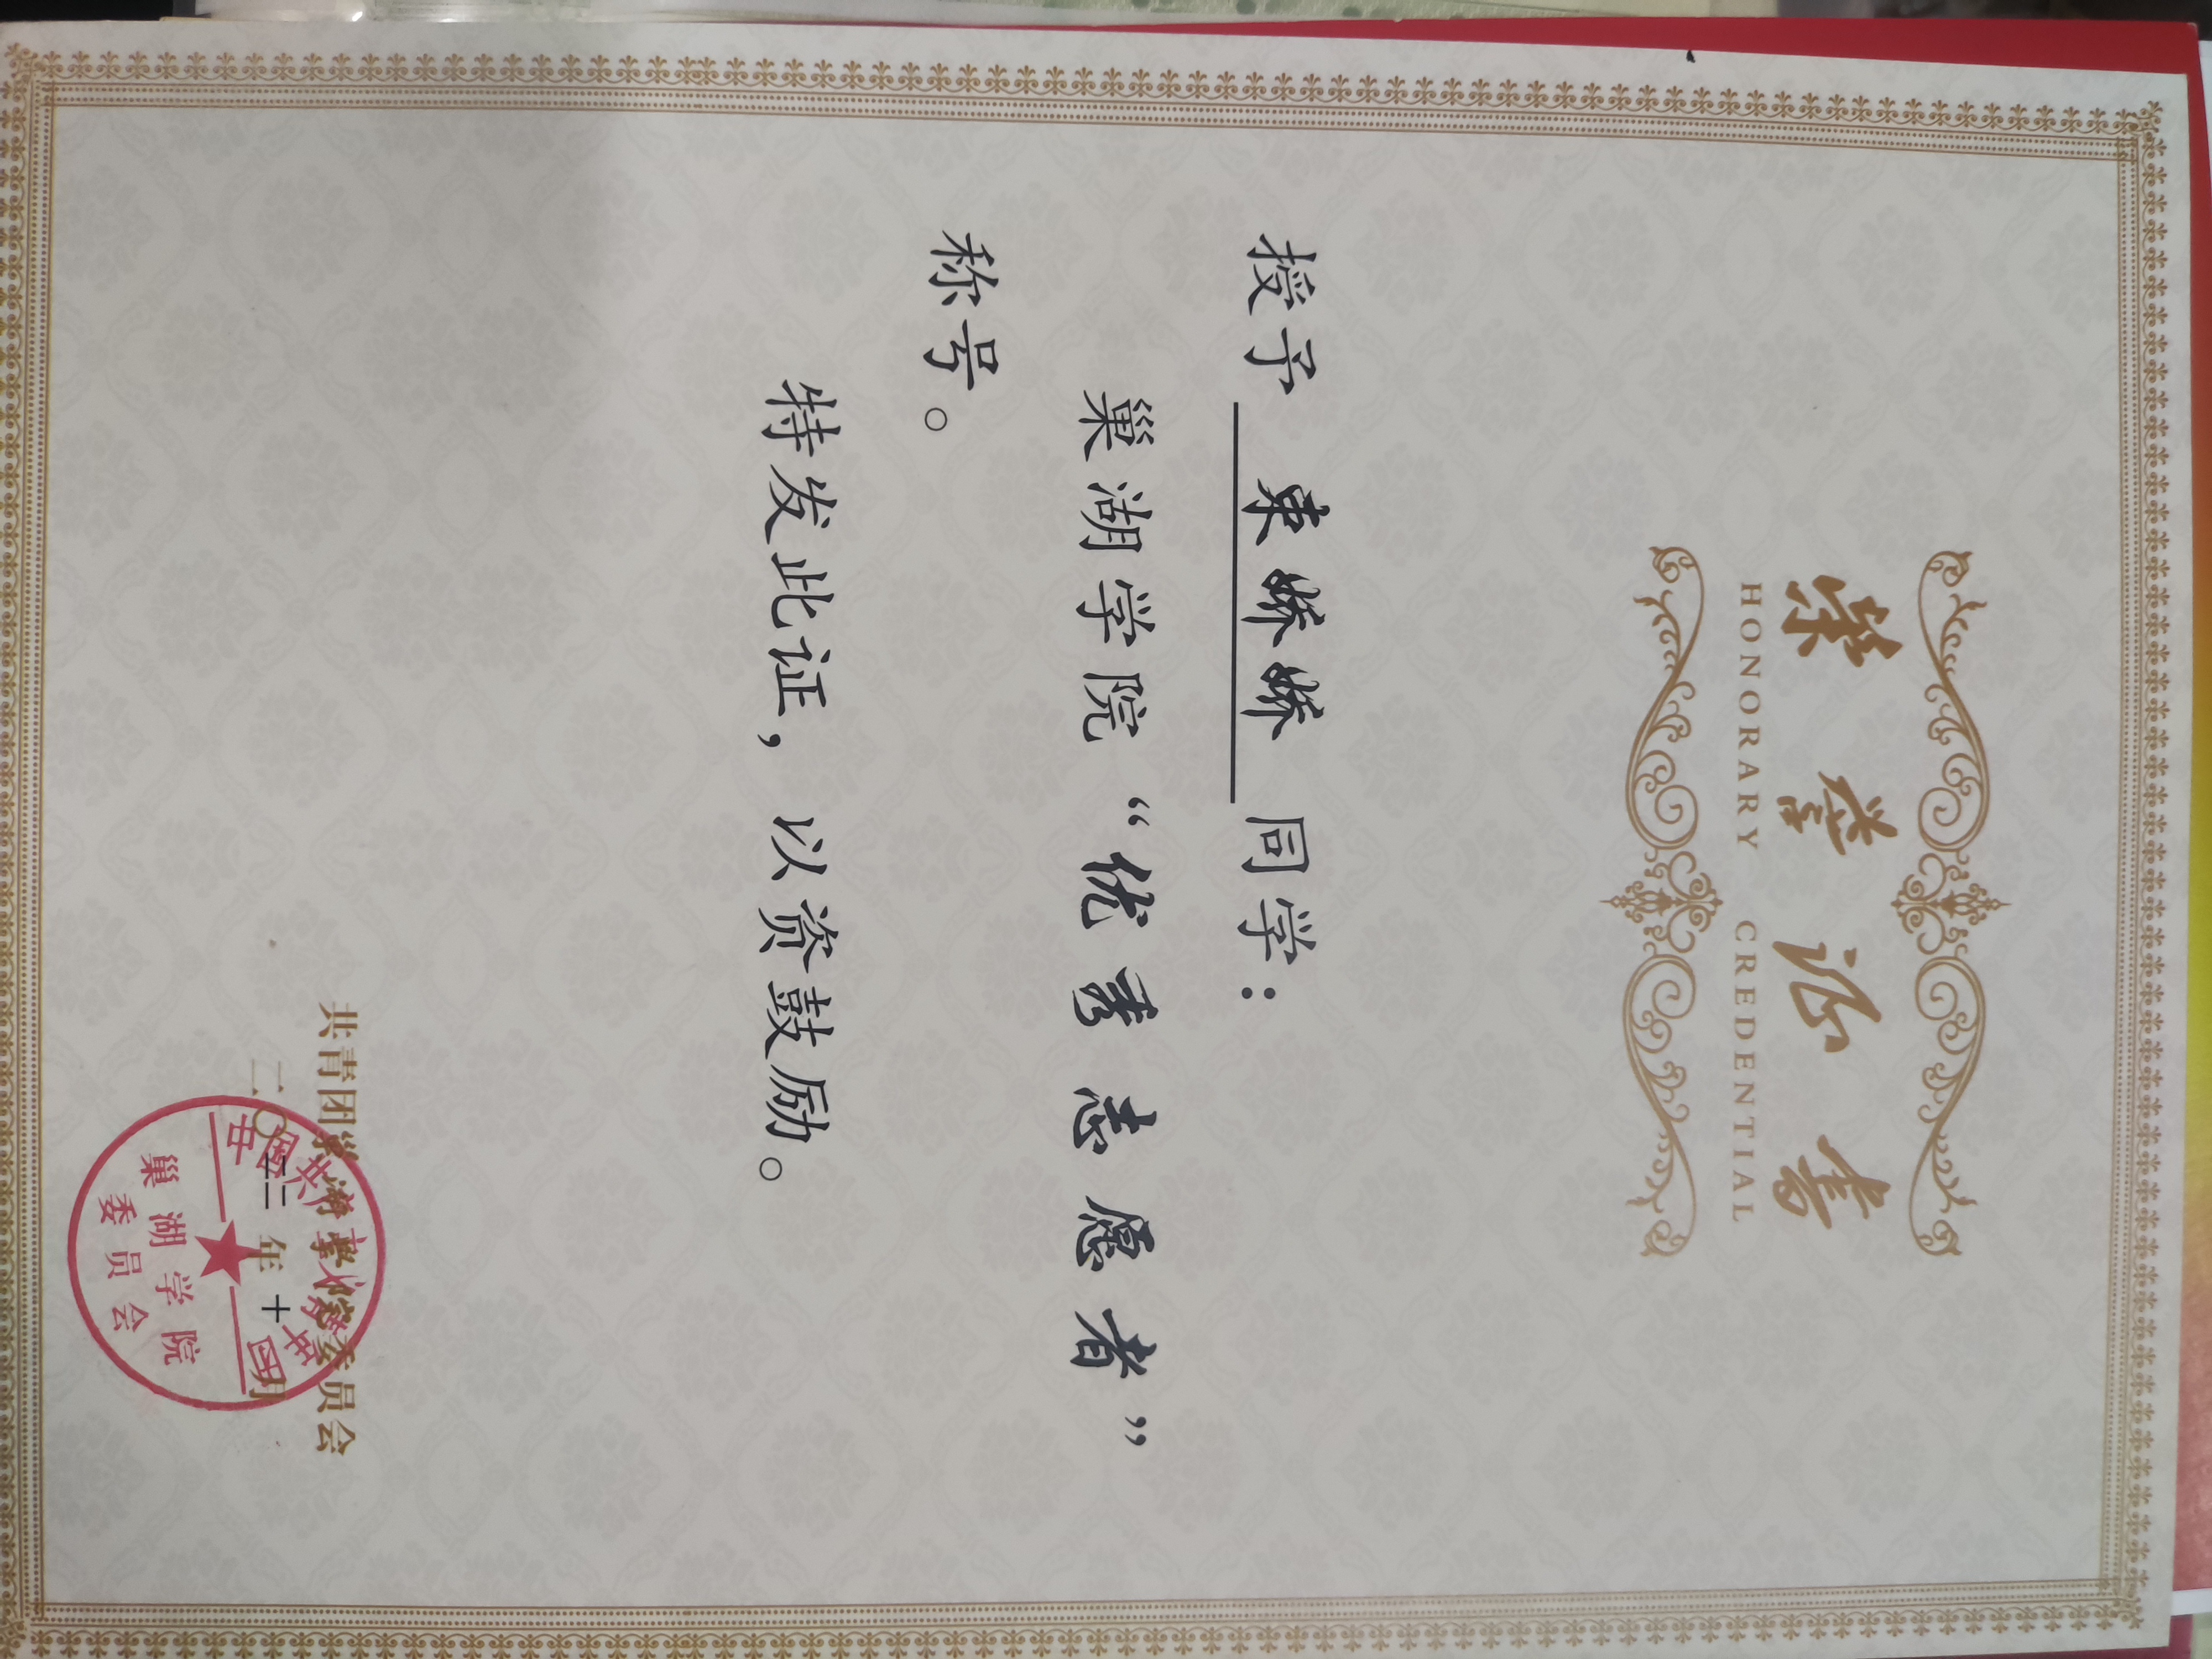 荣誉证书
HONORARY CREDENTIAL
授予 束娇娇 同学：
巢湖学院“优秀志愿者”
称号。
特发此证，以资鼓励。
共青团巢湖学院委员会
二〇二三年十月
中国共产主义青年团
巢湖学院
委员会